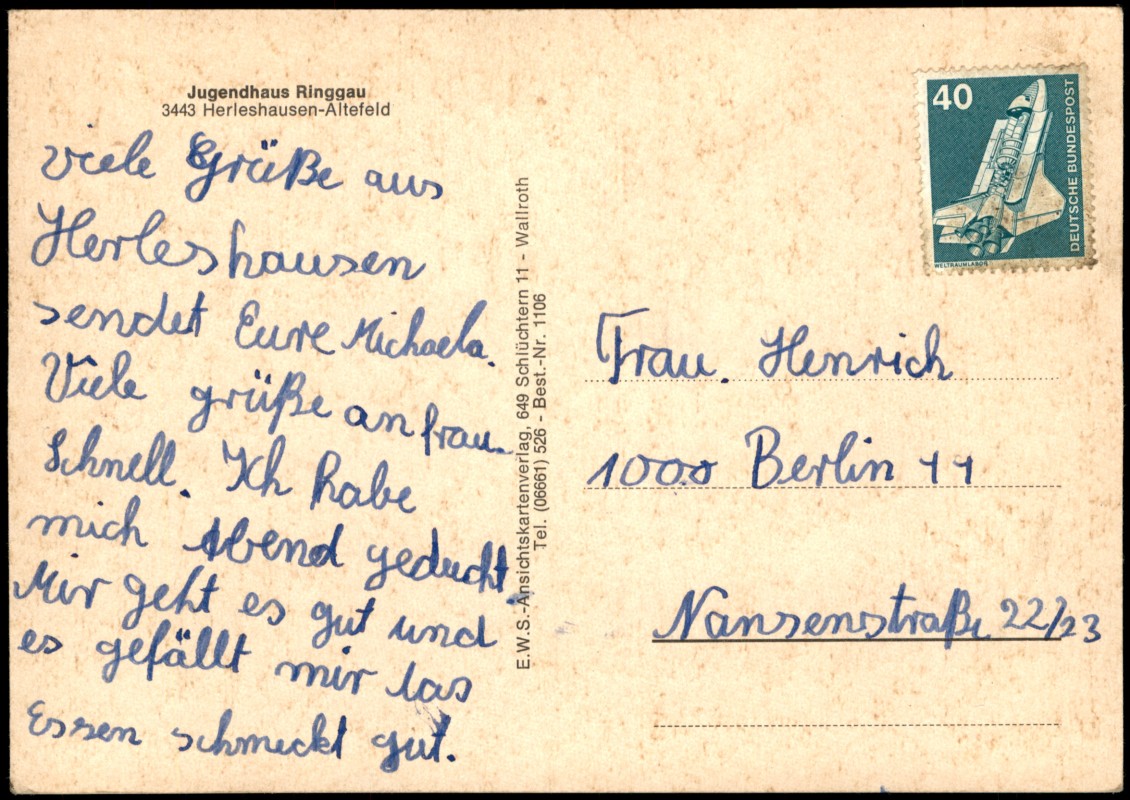 Jugendhaus Ringgau
3443 Herleshausen-Altefeld
viele Grüße aus
Herleshausen
sendet Eure Michaela.
Viele grüße an frau
Schnell. Ich habe
mich Abend geducht.
Mir geht es gut und
es gefällt mir das
Essen schmeckt gut.
E.W.S.-Ansichtskartenverlag, 649 Schlüchtern 11 - Wallroth
Tel. (06661) 526 - Best.-Nr. 1106
40
DEUTSCHE BUNDESPOST
WELTRAUMLABOR
Frau. Henrich
1000 Berlin 44
Nansenstraße 22/23